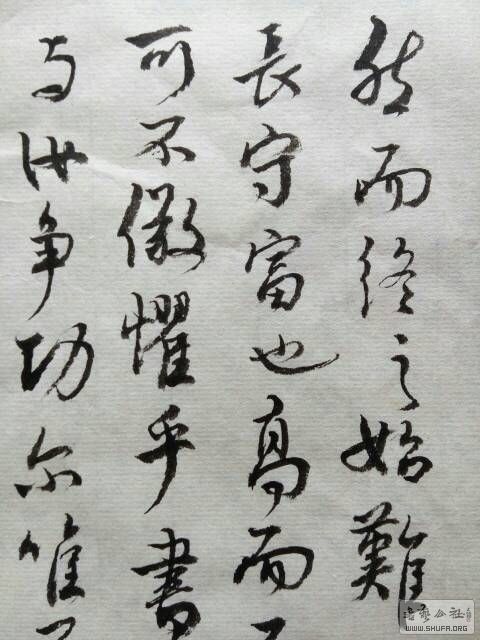 然而终之始難
長守富也高而
可不儆懼乎書
与汝争功尔惟
书艺公社
WWW.SHUFA.ORG